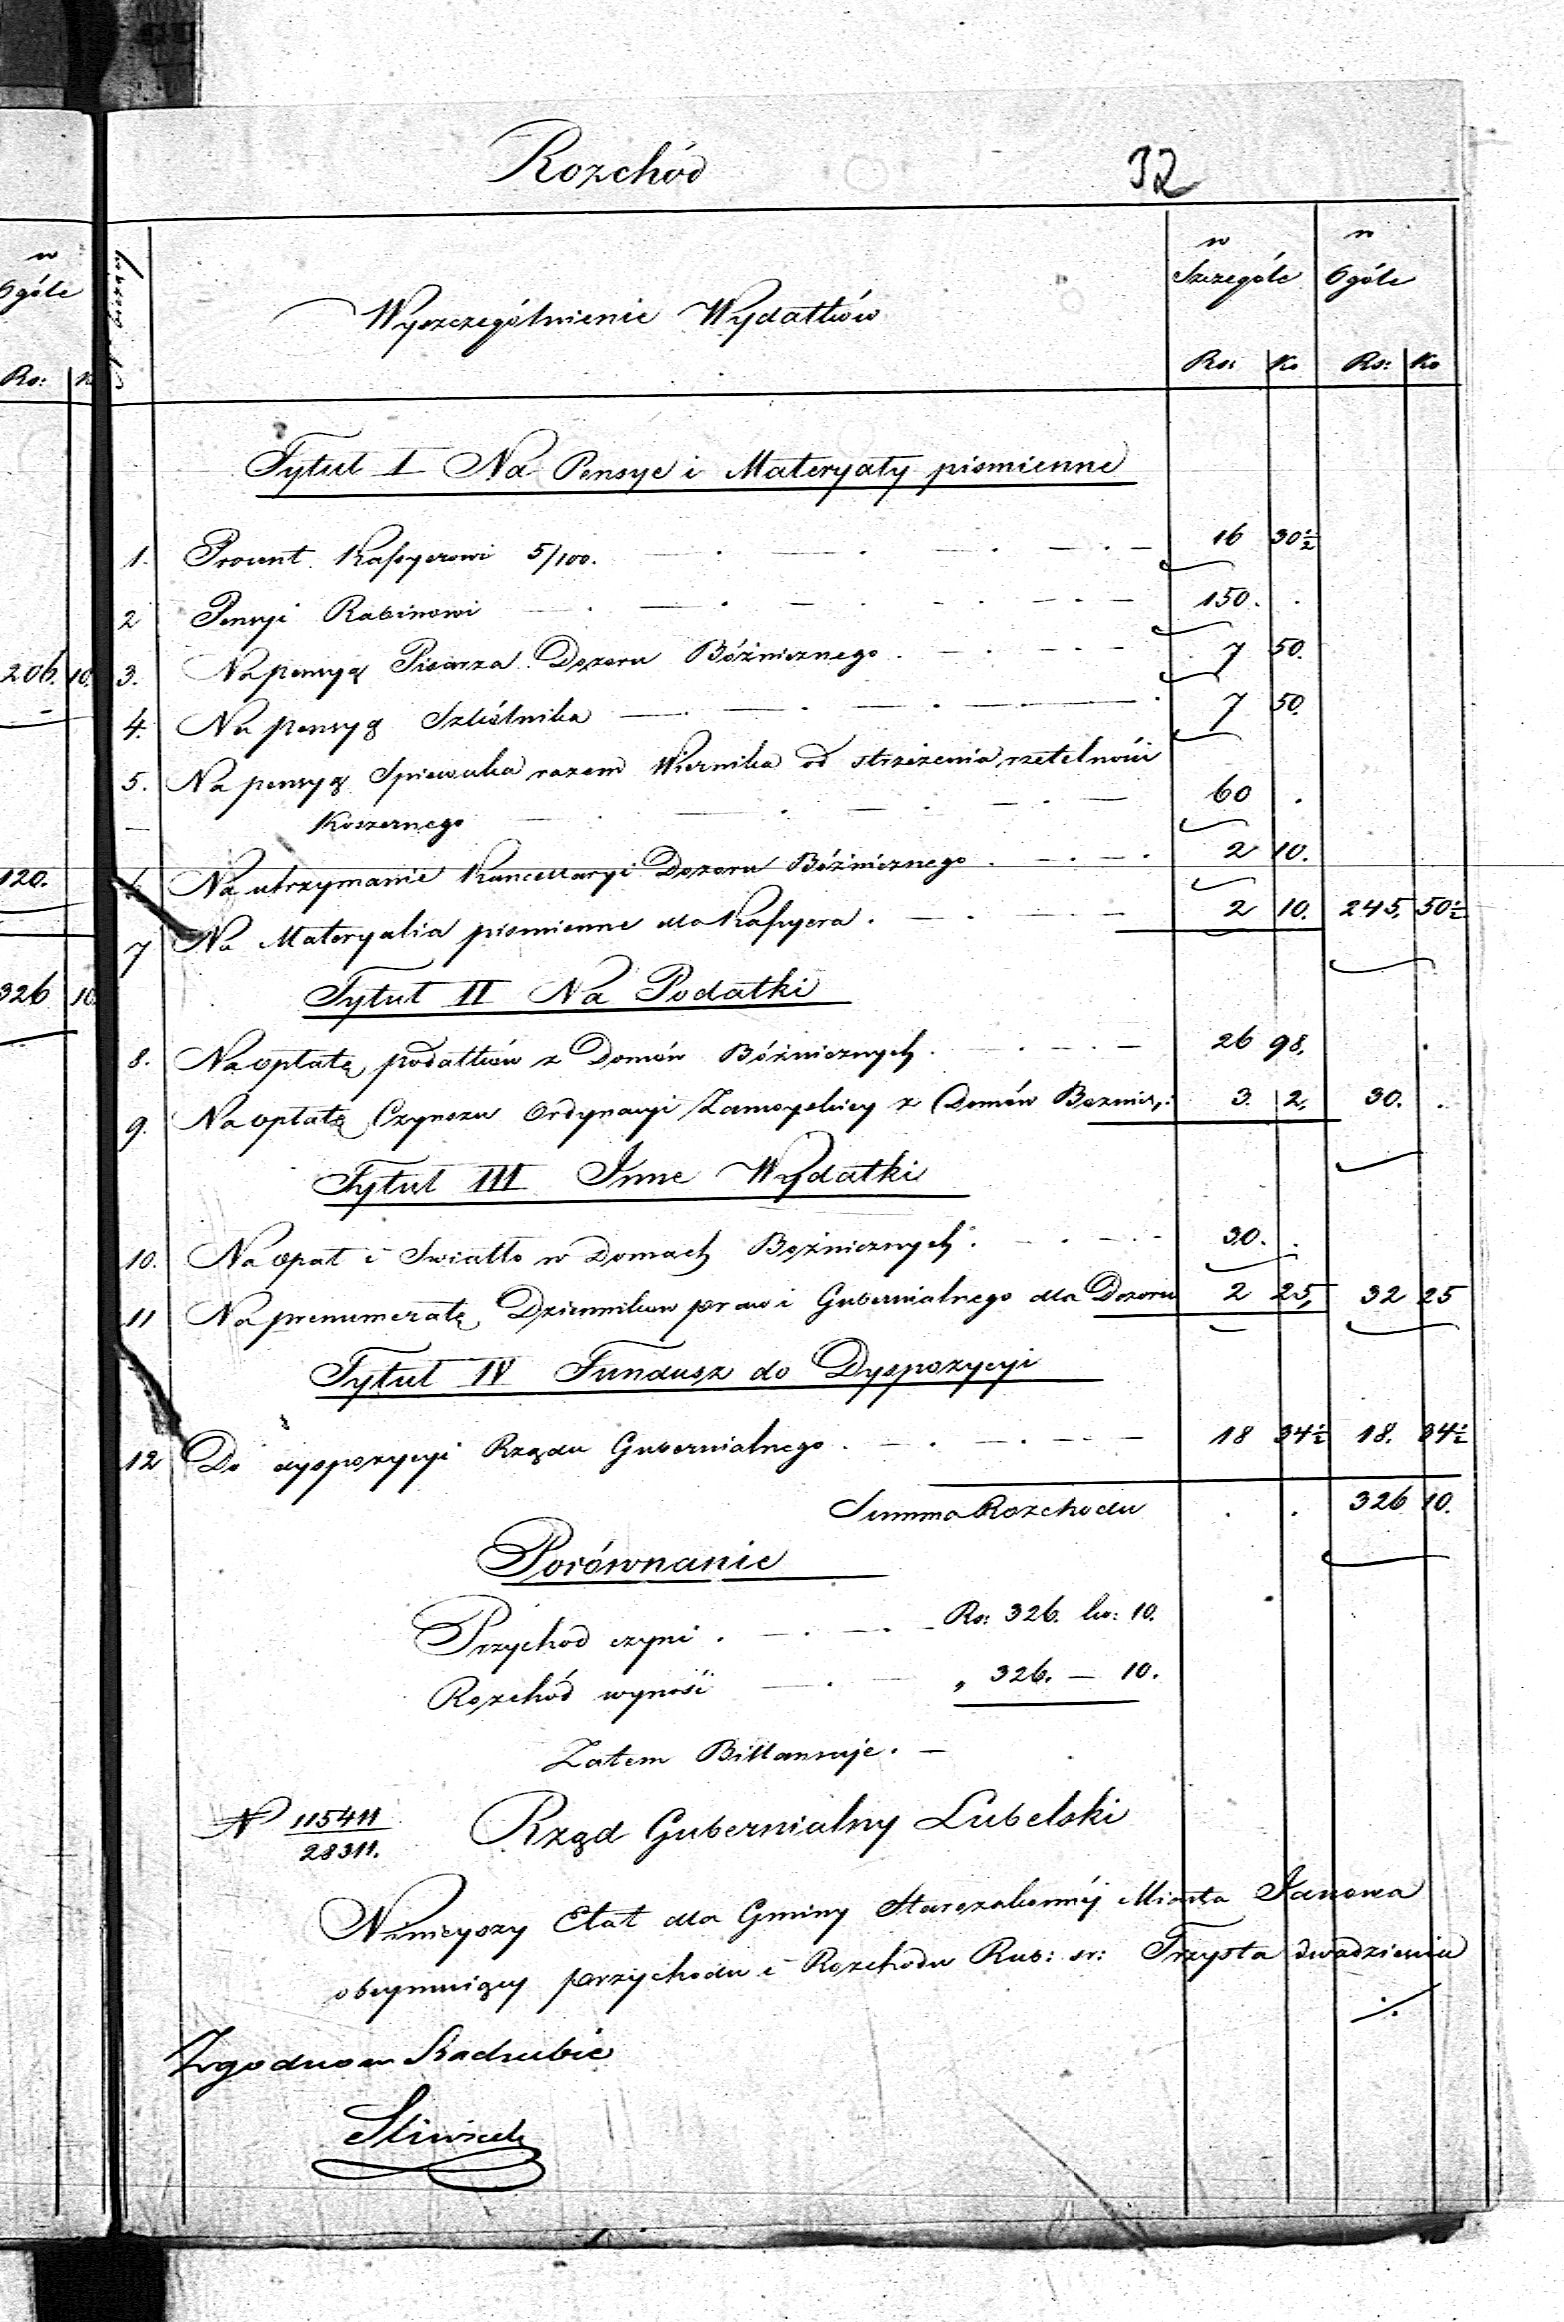 Rozchód 32
w Ogóle
Wyszczególnienie Wydatków
w Szczególe
w Ogóle
Rs: K
Rs: Ko Rs: Ko
Tytuł I Na Pensye i Materyały pismienne
1. Procent Kassyerowi 5/100. 16 30½
2 Pensyi Rabinowi 150.
206. 10.
3. Na pensyą Pisarza Dozoru Bóżnicznego 7 50.
4. Na pensyą Szkólnika 7 50.
5. Na pensyą Spiewaka razem Wiernika od strzeżenia rzetelności
Koszernego 60 .
120.
6. Na utrzymanie Kancellaryi Dozoru Bóżnicznego 2 10.
7 Na Materyalia pismienne dla Kassyera. 2 10. 245. 50½
326 10
Tytuł II Na Podatki
8. Na opłatę podatków z Domów Bóżnicznych. 26 98.
9. Na opłatę Czynszu Ordynacyi Zamoyskiey z Domów Boznic: 3. 2, 30. .
Tytuł III Inne Wydatki
10. Na opał i Swiatło w Domach Bożnicznych. 30. .
11 Na prenumeratę Dziennikow praw i Gubernialnego dla Dozoru 2 25, 32 25
Tytuł IV Fundusz do Dyspozycyi
12 Do dyspozycyi Rządu Gubernialnego. 18 34½ 18. 34½
Summa Rozchodu . . 326 10.
Porównanie
Przychod czyni . Rs: 326. ko: 10.
Rozchód wynosi „ 326. — 10.
Zatem Billansuje. —
N 115411/28311. Rząd Gubernialny Lubelski
Ninieyszy Etat dla Gminy Starozakonnéj Miasta Janowa
obeymuiący przychodu i Rozchodu Rub: sr: Trzysta dwadzieścia